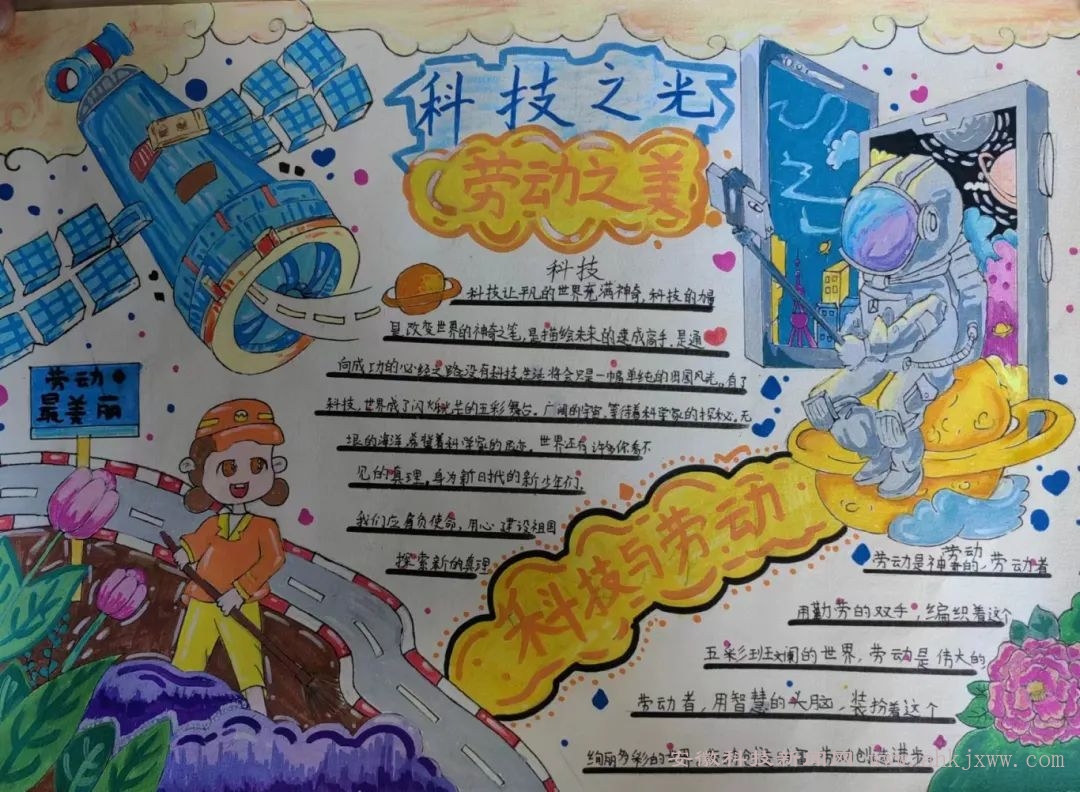 科技之光
劳动之美
科技
科技让平凡的世界充满神奇，科技的力量
是改变世界的神奇之笔，是描绘未来的速成高手，是通
向成功的必经之路没有科技生活将会只是一幅单纯的田园风光。有了
科技，世界成了闪烁光芒的五彩舞台。广阔的宇宙，等待着科学家的探秘。无
垠的海洋，希望着科学家的足迹。世界还有许多你看不
见的真理，身为新日代的新少年们，
我们应肩负使命，用心建设祖国
探索新的真理
劳动
最美丽
科技与劳动
劳动
劳动是神圣的，劳动者
用勤劳的双手，编织着这个
五彩斑斓的世界，劳动是伟大的
劳动者，用智慧的头脑，装扮着这个
绚丽多彩的世界 劳动创造财富 劳动创造进步
kjxww.com